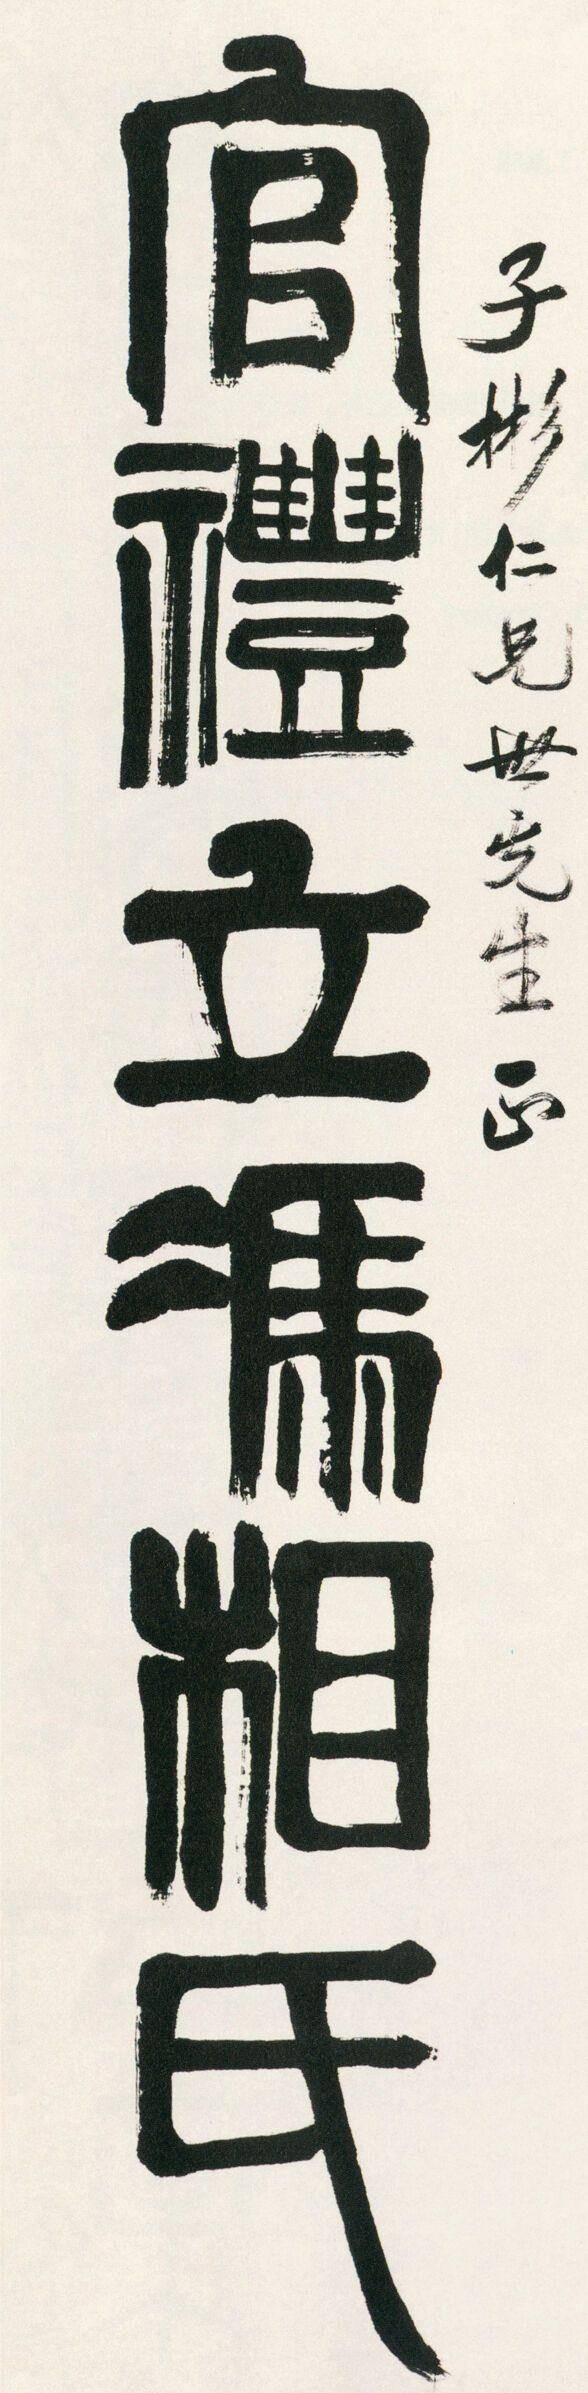 子彬仁兄世先生正
官禮立馮相氏